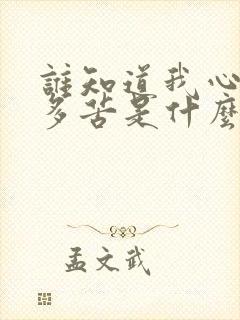 誰知道我心
多苦是什麼
孟文武